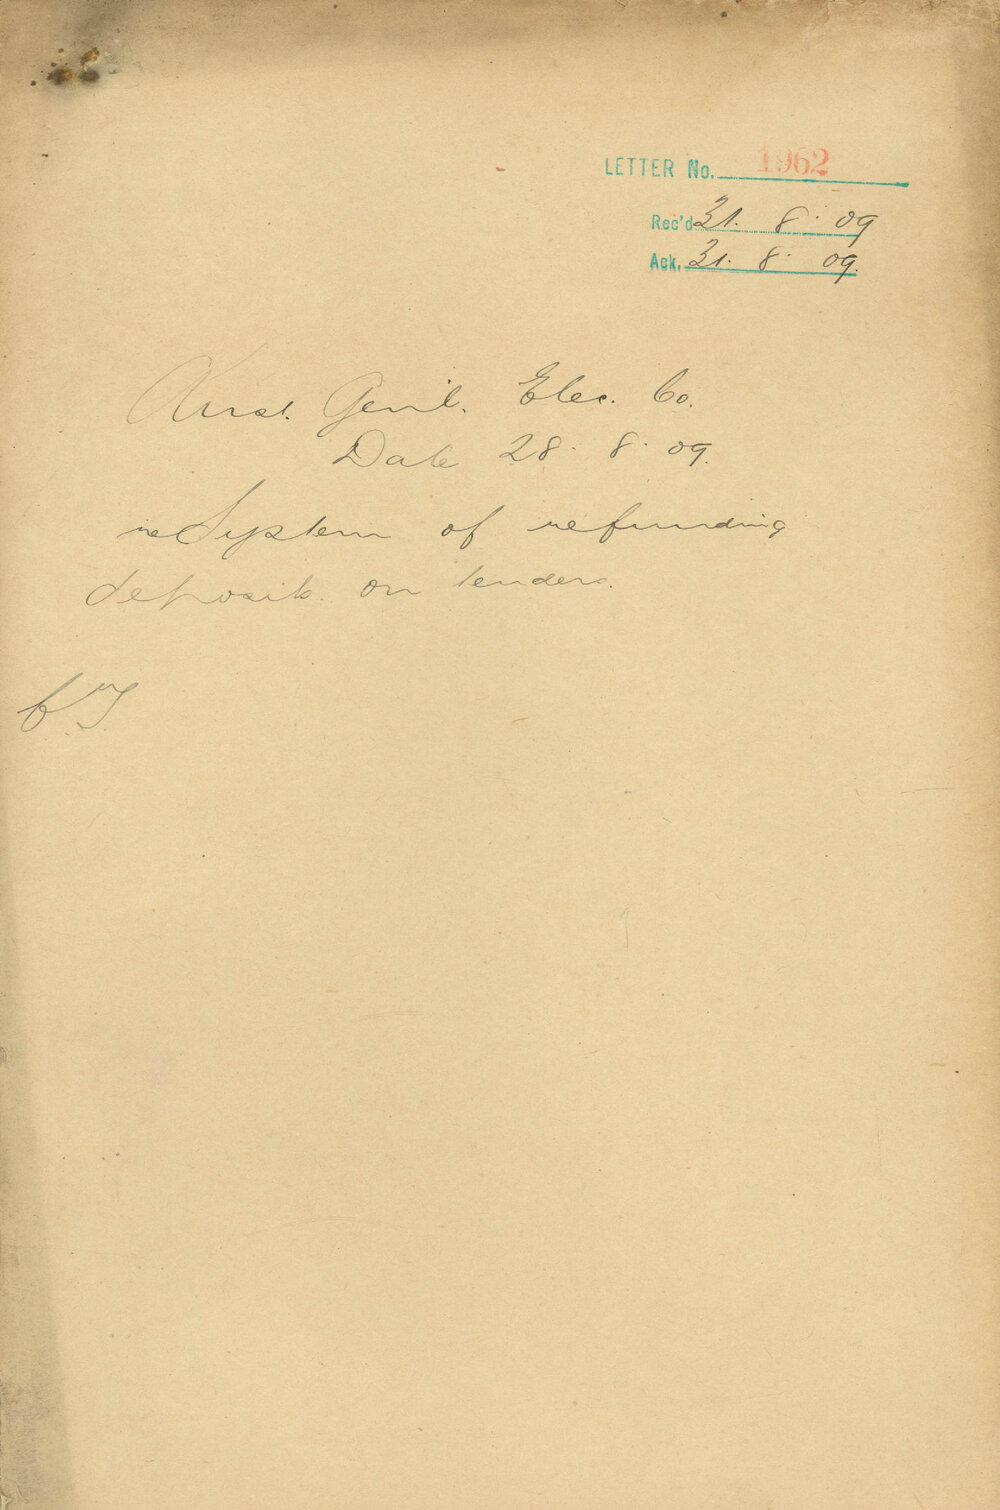 LETTER No. 1962
Rec'd 31. 8. 09
Ack. 31. 8. 09.
Aust. Genl. Elec. Co.
Date 28. 8. 09.
re System of refunding
deposits on tenders.